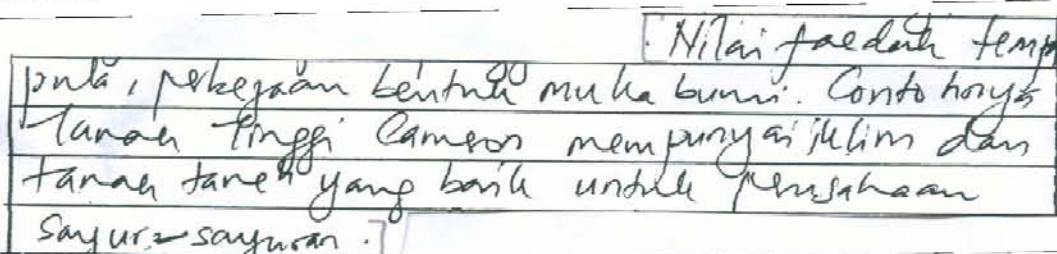 Nilai faedah temp
pula, perbezaan bentuk muka bumi. Contohnya
Tanah Tinggi Cameron mempunyai iklim dan
tanah tanih yang baik untuk perusahaan
sayur-sayuran.